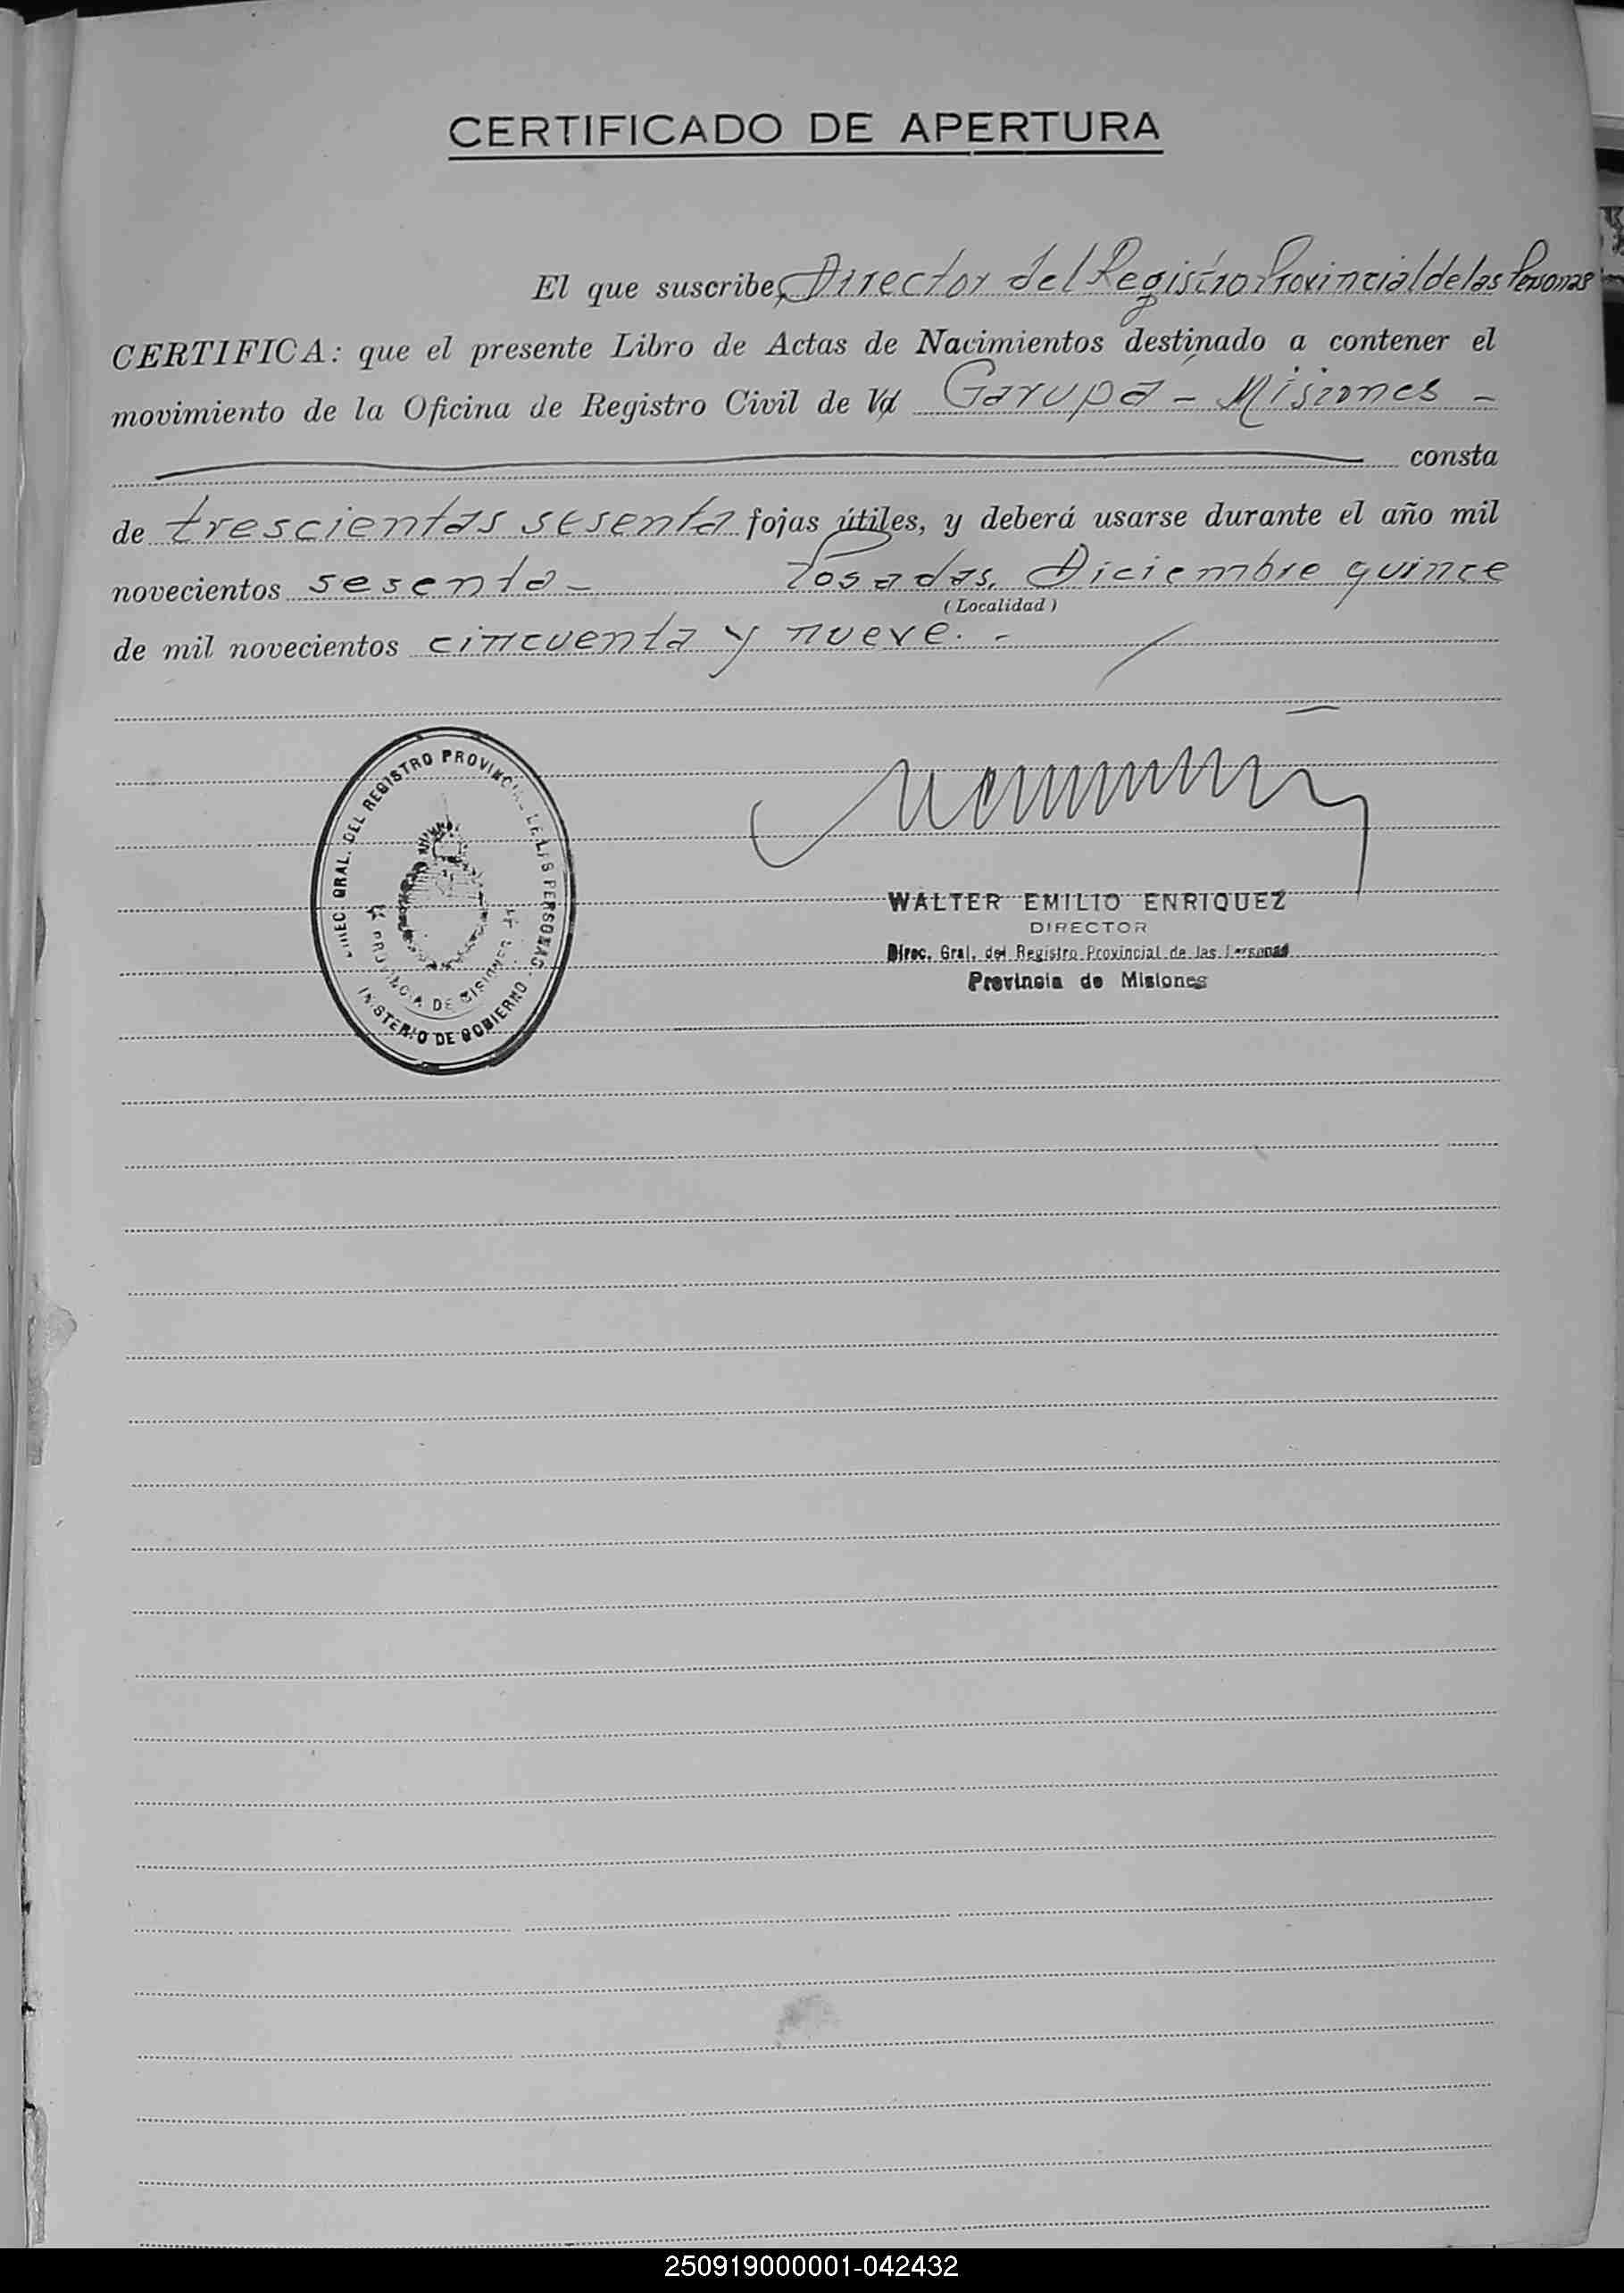 CERTIFICADO DE APERTURA
El que suscribe, Director del Registro Provincial de las Personas
CERTIFICA: que el presente Libro de Actas de Nacimientos destinado a contener el
movimiento de la Oficina de Registro Civil de Garupá - Misiones -
consta
de trescientas sesenta fojas útiles, y deberá usarse durante el año mil
novecientos sesenta - Posadas, Diciembre quince
(Localidad)
de mil novecientos cincuenta y nueve. -
DIREC. GRAL. DEL REGISTRO PROVINCIAL DE LAS PERSONAS
PROVINCIA DE MISIONES
MINISTERIO DE GOBIERNO
WALTER EMILIO ENRIQUEZ
DIRECTOR
Direc. Gral. del Registro Provincial de las Personas
Provincia de Misiones
250919000001-042432